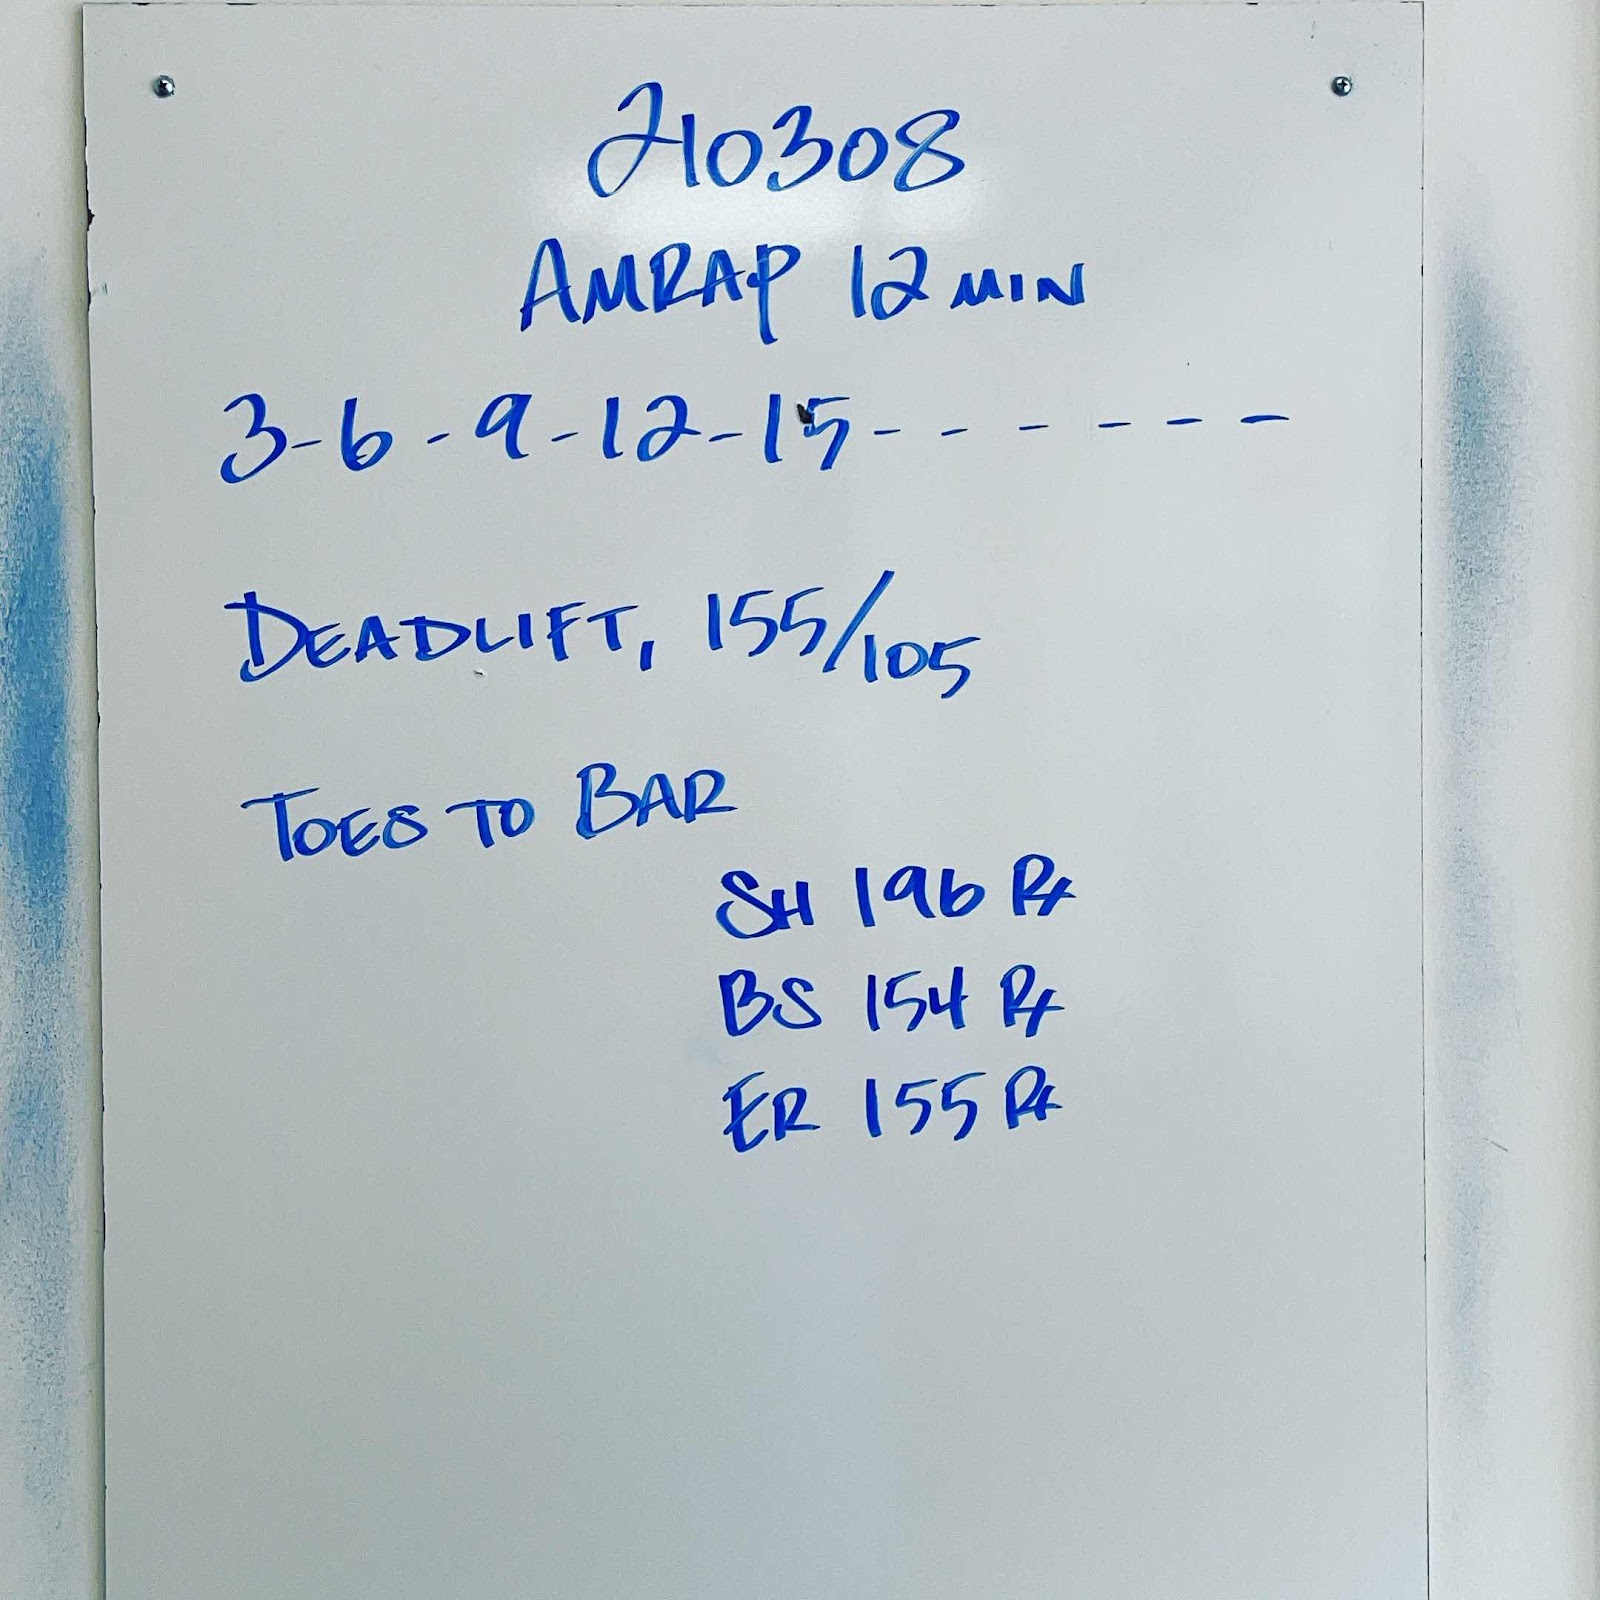 210308
AMRAP 12 MIN
3-6-9-12-15- - - - - -
DEADLIFT, 155/105
TOES TO BAR
SH 196 Rx
BS 154 Rx
ER 155 Rx